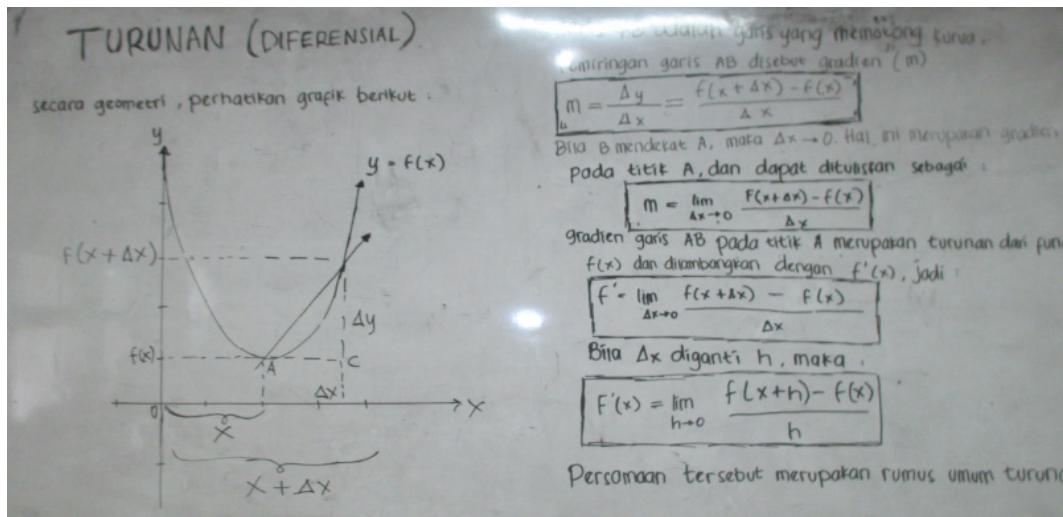 TURUNAN (DIFERENSIAL)
secara geometri, perhatikan grafik berikut :
y
y = f(x)
f(x + Δx)
Δy
f(x)
A
C
Δx
0
X
X
X + Δx
garis yang memotong kurva.
kemiringan garis AB disebut gradien (m)
m = Δy / Δx = f(x + Δx) - f(x) / Δx
Bila B mendekat A, maka Δx → 0. Hal ini merupakan gradien
pada titik A, dan dapat dituliskan sebagai :
m = lim Δx→0 F(x+Δx) - f(x) / Δx
gradien garis AB pada titik A merupakan turunan dari fun
f(x) dan dilambangkan dengan f'(x), jadi :
f' = lim Δx→0 f(x + Δx) - f(x) / Δx
Bila Δx diganti h, maka :
F'(x) = lim h→0 f(x+h) - f(x) / h
Persamaan tersebut merupakan rumus umum turuna